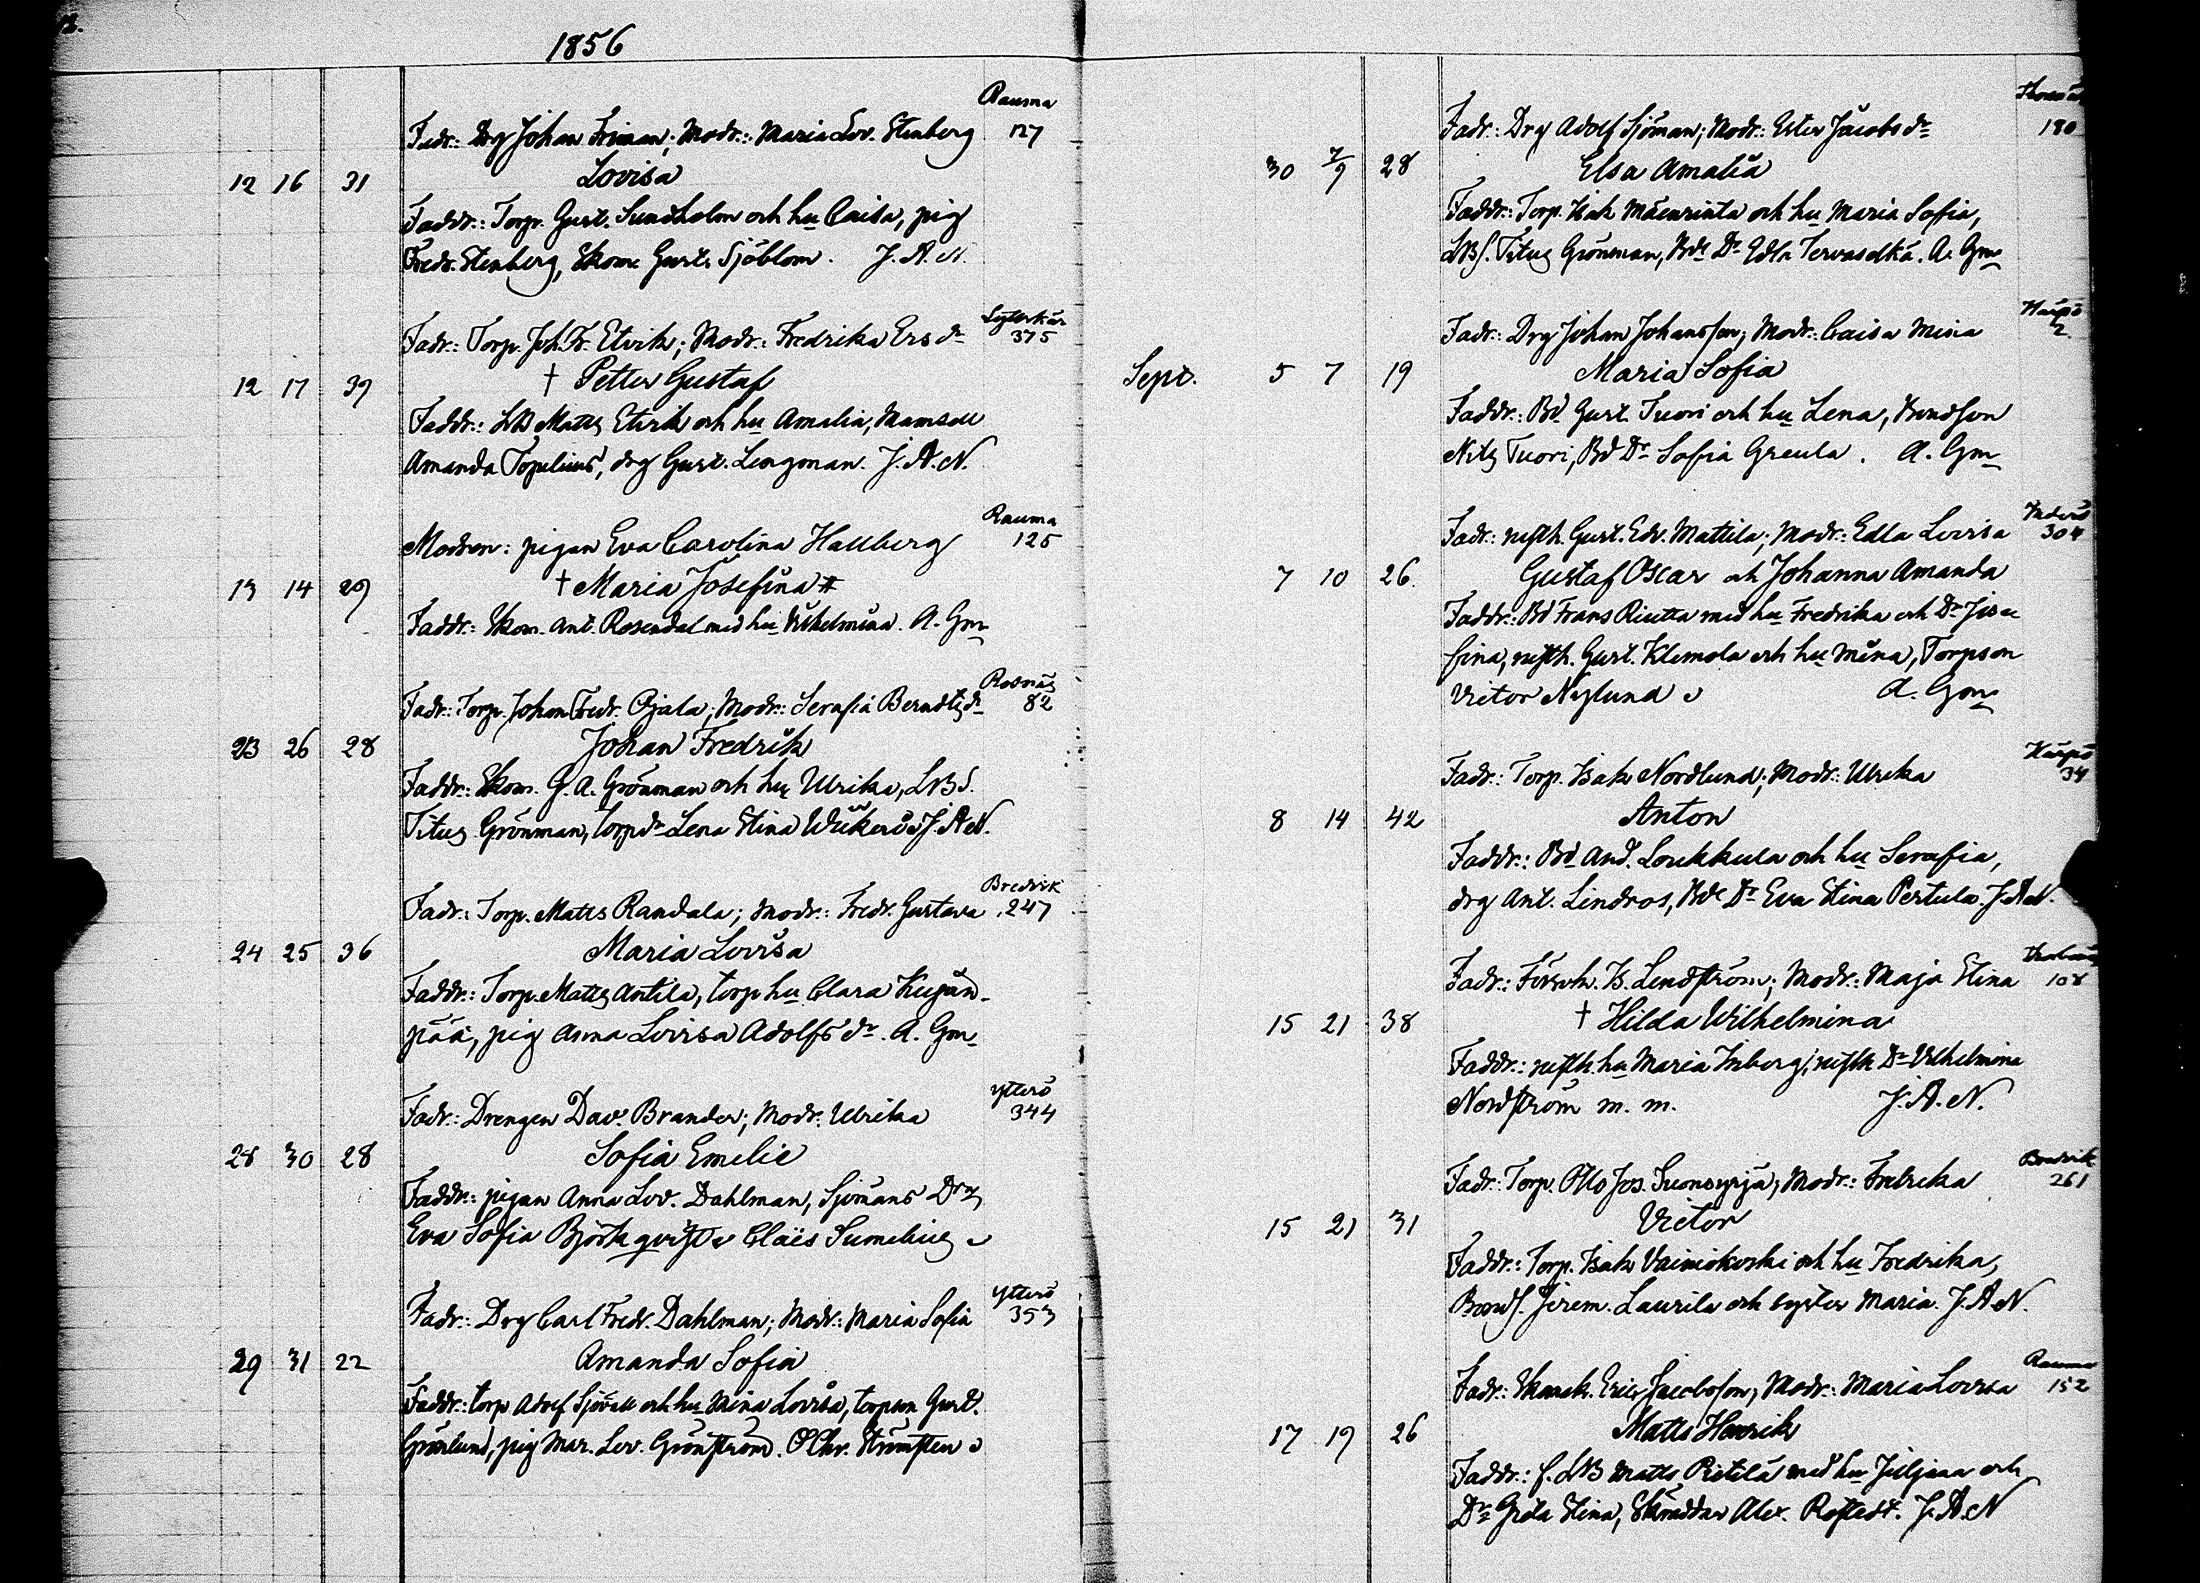 1856
Rauma
Fadr.: Drg Johan Friman; Modr.: Maria Lov. Stenberg 127
12 16 31 Lovisa
Faddr.: Torp. Gust. Sundholm och hu Caisa, pig
Fredr. Stenberg, Skom. Gust. Sjöblom. J. A. N.
Fadr.: Torp. Joh. Fr. Elvik; Modr.: Fredrika Ersdr 375
12 17 39 † Petter Gustaf
Faddr.: LB Matts Elvik och hu Amalia, Mamsell
Amanda Topelius, drg Gust. Lengman. J. A. N.
Rauma
Modren: pigan Eva Carolina Hallberg 125
13 14 29 † Maria Josefina #
Faddr.: Skom. Ant. Rosendal med hu Vilhelmina. A. Gm
Rosnäs
Fadr.: Torp. Johan Fredr. Ojala; Modr.: Serafia Berndtsdr 82
23 26 28 Johan Fredrik
Faddr.: Skom. G. A. Grönman och hu Ulrika, LBS.
Titus Grönman, torpdr Lena Stina J. A. N.
Bredvik
Fadr.: Torp. Matts Randala; Modr.: Fredr. Gustava 247
24 25 36 Maria Lovisa
Faddr.: Torp. Matts Antila, torp hu Clara Kujan-
pää, pig Anna Lovisa Adolfsdr. A. Gm
Ytterö
Fadr.: Drengen Dav. Brander; Modr. Ulrika 344
28 30 28 Sofia Emelie
Faddr.: pigan Anna Lov. Dahlman, Sjömans Dr
Eva Sofia Björkqvist Claës Sumelius
Ytterö
Fadr.: Drg Carl Fredr. Dahlman; Modr.: Maria Sofia 353
29 31 22 Amanda Sofia
Faddr.: torp Adolf Sjövall och hu Mina Lovisa, torpson Gust.
Grönlund, pig Mar. Lov. Grönström. O Chr. Strömsten
Fadr.: Drg Adolf Sjöman; Modr.: Ester Jacobsdr 180
30 2/9 28 Elsa Amalia
Faddr.: Torp. Isak Mäenrinta och hu Maria Sofia,
LBS. Titus Grönman, Bde Dr Edla Tervaselkä. A. Gm
Fadr.: Drg Johan Johansson; Modr.: Caisa Mina 2
Sept. 5 7 19 Maria Sofia
Faddr.: Bd Gust. Tuori och hu Lena, Bondson
Nils Tuori, Bd Dr Sofia Greula. A. Gm
Fadr.: Gust. Edv. Mattila; Modr.: Edla Lovisa 304
7 10 26. Gustaf Oscar och Johanna Amanda
Faddr.: Bd Frans Riutta med hu Fredrika och Dr Jose
fina, Gust. Klemola och hu Mina, Torpson
Victor Nylund A. Gm
Fadr.: Torp. Isak Nordlund; Modr.: Ulrika 34
8 14 42 Anton
Faddr.: Bd And. Loukkula och hu Serafia,
drg Ant. Lindros, Bde Dr Eva Stina Pertula. J. A. N.
Fadr.: Is. Lindström; Modr.: Maja Stina 108
15 21 38 † Hilda Wilhelmina
Faddr.: hu Maria Inborg, Dr Vilhelmina
Nordström m. m. J. A. N.
Bredvik
Fadr.: Torp. Otto Jos. Suonsyrjä; Modr.: Fredrika 261
15 21 31 Victor
Faddr.: Torp. Isak Vainiokoski och hu Fredrika,
Bonds. Jerem. Laurila och syster Maria. J. A. N.
Rauma
Fadr.: Eric Jacobsson; Modr.: Maria Lovisa 152
17 19 26 Matts Henrik
Faddr.: f. LB Matts Pietilä med hu Juljana och
Dr Greta Stina, Skräddar Alex. Rostedt. J. A. N